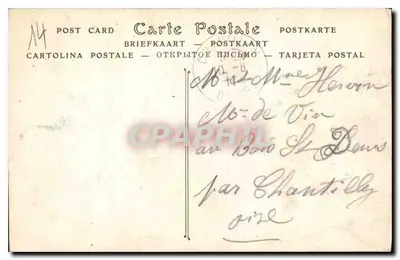 14
POST CARD Carte Postale POSTKARTE
BRIEFKAART — POSTKAART
CARTOLINA POSTALE — ОТКРЫТОЕ ПИСЬМО — TARJETA POSTAL
Mr et Mme Hervin
Md de Vin
au Bois St Denis
par Chantilly
oise
CPARAMA